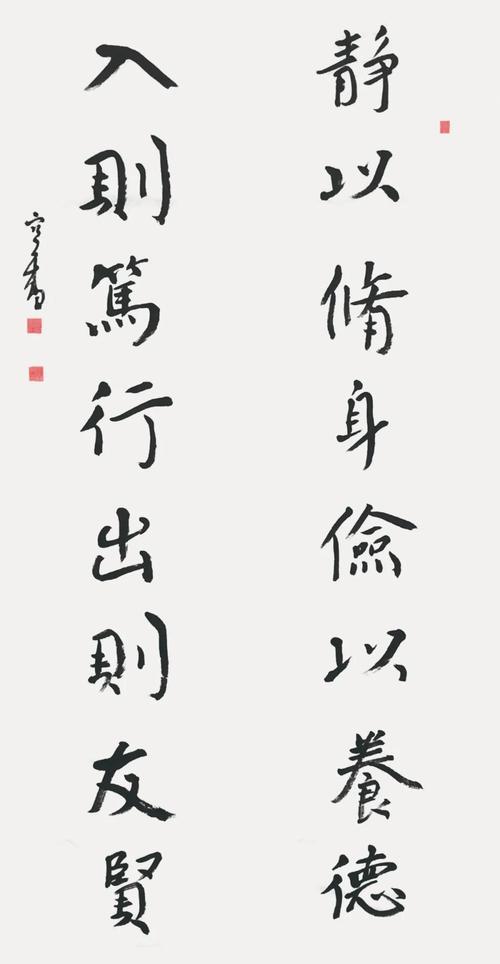 静以脩身儉以養德
入則篤行出則友賢